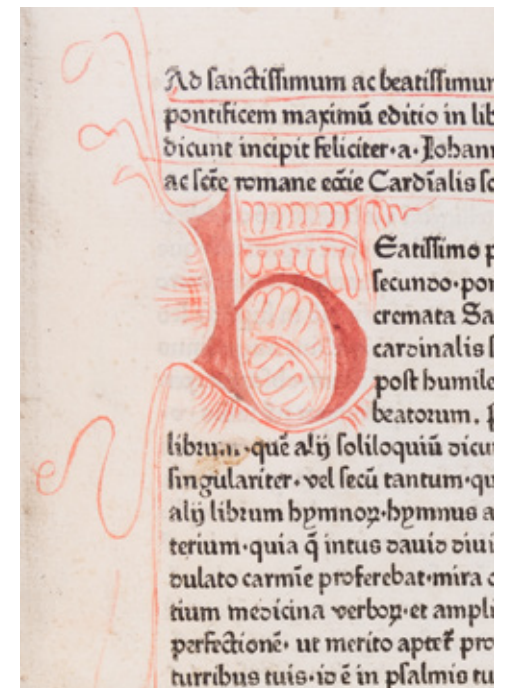 Ad sanctissimum ac beatissimum
pontificem maximū editio in lib
dicunt incipit feliciter·a·Johann
ac scte romane eccie Cardīalis sc
b Eatissimo p
secundo·pon
cremata Sa
cardinalis s
post humile
beatorum.
librum·quē alij soliloquiū dicu
singulariter·vel secū tantum·qu
alij librum hymnoꝝ·hymnus a
terium·quia q̄ intus dauid diui
dulato carmīe proferebat·mira
tium medicina verboꝝ·et ampli
perfectionē·ut merito aptet pro
turribus tuis·id ē in psalmis tu